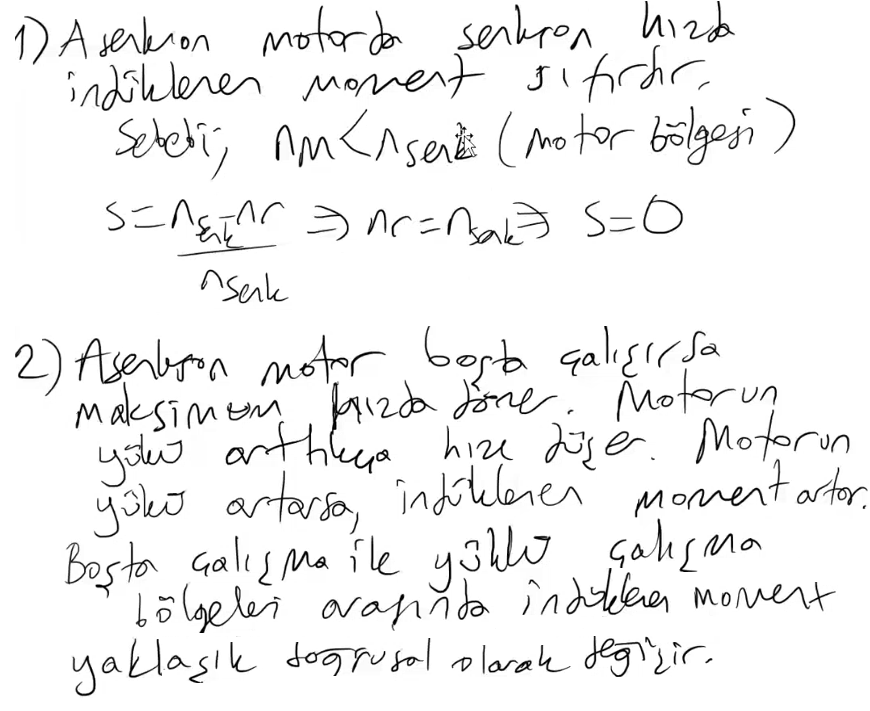 1) Asenkron motorda senkron hızda
indüklenen moment sıfırdır.
Sebebi; nM < nsenk (motor bölgesi)
s = nsenk - nr ⇒ nr = nsenk ⇒ s = 0
nsenk
2) Asenkron motor boşta çalışırsa
maksimum hızda döner. Motorun
yükü arttıkça hızı düşer. Motorun
yükü artarsa, indüklenen moment artar.
Boşta çalışma ile yüklü çalışma
bölgeleri arasında indüklenen moment
yaklaşık doğrusal olarak değişir.